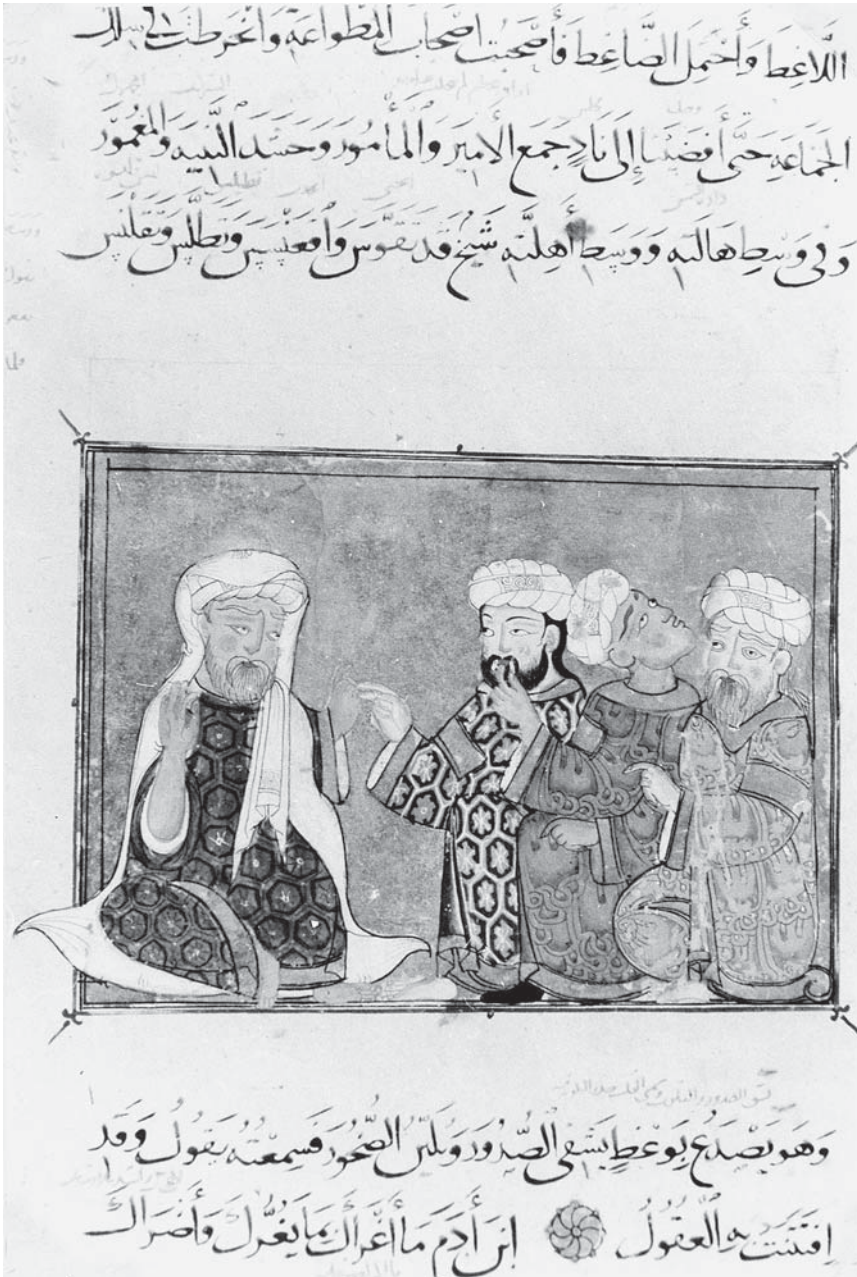 اللَّاغِطَ وَأَحْتَمِلَ الضَّاغِطَ فَأَصْحَبْتُ إِصْحَابَ المِطْوَاعَةِ وَانْخَرَطْتُ فِي سِلْكِ
الجَمَاعَةِ حَتَّى أَفْضَيْنَا إِلَى نَادٍ جَمَعَ الأَمِيرَ وَالمَأْمُورَ وَحَشَدَ النَّبِيهَ وَالمَغْمُورَ
وَفِي وَسَطِ هَالَتِهِ وَوَسَطِ أَهِلَّتِهِ شَيْخٌ قَدْ تَقَوَّسَ وَاقْعَنْسَسَ وَتَطَلَّسَ وَتَقَلْنَسَ
وَهُوَ يَصْدَعُ بِوَعْظٍ يَشْفِي الصُّدُورَ وَيُلَيِّنُ الصُّخُورَ فَسَمِعْتُهُ يَقُولُ وَقَدِ
افْتَتَنَتْ بِهِ العُقُولُ ابْنَ أَدَمَ مَا أَغْرَاكَ بِمَا يَغُرُّكَ وَأَضْرَاكَ